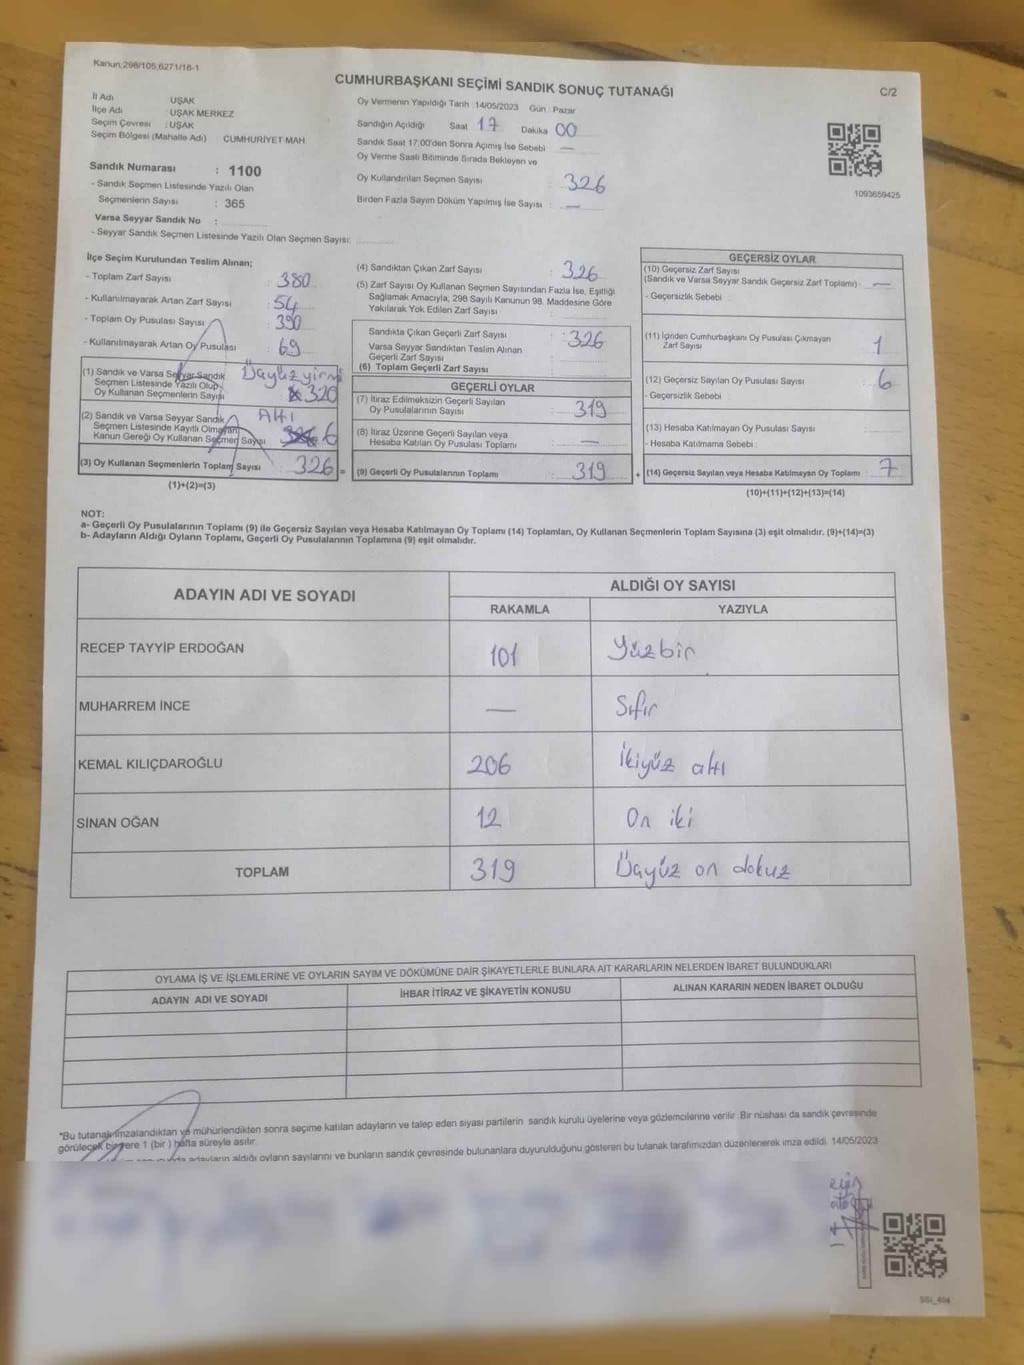 Kanun,298/105,6271/16-1
CUMHURBAŞKANI SEÇİMİ SANDIK SONUÇ TUTANAĞI
C/2
İl Adı : UŞAK
İlçe Adı : UŞAK MERKEZ
Seçim Çevresi : UŞAK
Seçim Bölgesi (Mahalle Adı) : CUMHURİYET MAH
Sandık Numarası : 1100
- Sandık Seçmen Listesinde Yazılı Olan
Seçmenlerin Sayısı : 365
Varsa Seyyar Sandık No :
- Seyyar Sandık Seçmen Listesinde Yazılı Olan Seçmen Sayısı:
Oy Vermenin Yapıldığı Tarih :14/05/2023 Gün : Pazar
Sandığın Açıldığı Saat 17 Dakika 00
Sandık Saat 17:00'den Sonra Açımış İse Sebebi : —
Oy Verme Saati Bitiminde Sırada Bekleyen ve
Oy Kullandırılan Seçmen Sayısı : 326
Birden Fazla Sayım Döküm Yapılmış İse Sayısı : —
1093659425
İlçe Seçim Kurulundan Teslim Alınan;
- Toplam Zarf Sayısı : 380
- Kullanılmayarak Artan Zarf Sayısı : 54
- Toplam Oy Pusulası Sayısı : 390
- Kullanılmayarak Artan Oy Pusulası : 69
(1) Sandık ve Varsa Seyyar Sandık
Seçmen Listesinde Yazılı Olup,
Oy Kullanan Seçmenlerin Sayısı
Üçyüzyirmi
320
(2) Sandık ve Varsa Seyyar Sandık
Seçmen Listesinde Kayıtlı Olmayan
Kanun Gereği Oy Kullanan Seçmen Sayısı
Altı
6
(3) Oy Kullanan Seçmenlerin Toplam Sayısı : 326 =
(1)+(2)=(3)
(4) Sandıktan Çıkan Zarf Sayısı : 326
(5) Zarf Sayısı Oy Kullanan Seçmen Sayısından Fazla İse, Eşitliği
Sağlamak Amacıyla, 298 Sayılı Kanunun 98. Maddesine Göre
Yakılarak Yok Edilen Zarf Sayısı :
Sandıkta Çıkan Geçerli Zarf Sayısı : 326
Varsa Seyyar Sandıktan Teslim Alınan
Geçerli Zarf Sayısı
(6) Toplam Geçerli Zarf Sayısı :
GEÇERLİ OYLAR
(7) İtiraz Edilmeksizin Geçerli Sayılan
Oy Pusulalarının Sayısı : 319
(8) İtiraz Üzerine Geçerli Sayılan veya
Hesaba Katılan Oy Pusulası Toplamı : —
(9) Geçerli Oy Pusulalarının Toplamı : 319 +
GEÇERSİZ OYLAR
(10) Geçersiz Zarf Sayısı
(Sandık ve Varsa Seyyar Sandık Geçersiz Zarf Toplamı) : —
- Geçersizlik Sebebi :
(11) İçinden Cumhurbaşkanı Oy Pusulası Çıkmayan
Zarf Sayısı : 1
(12) Geçersiz Sayılan Oy Pusulası Sayısı : 6
- Geçersizlik Sebebi :
(13) Hesaba Katılmayan Oy Pusulası Sayısı :
- Hesaba Katılmama Sebebi :
(14) Geçersiz Sayılan veya Hesaba Katılmayan Oy Toplamı : 7
(10)+(11)+(12)+(13)=(14)
NOT:
a- Geçerli Oy Pusulalarının Toplamı (9) ile Geçersiz Sayılan veya Hesaba Katılmayan Oy Toplamı (14) Toplamları, Oy Kullanan Seçmenlerin Toplam Sayısına (3) eşit olmalıdır. (9)+(14)=(3)
b- Adayların Aldığı Oyların Toplamı, Geçerli Oy Pusulalarının Toplamına (9) eşit olmalıdır.
ADAYIN ADI VE SOYADI
ALDIĞI OY SAYISI
RAKAMLA YAZIYLA
RECEP TAYYİP ERDOĞAN 101 Yüzbir
MUHARREM İNCE — Sıfır
KEMAL KILIÇDAROĞLU 206 İkiyüz altı
SİNAN OĞAN 12 On iki
TOPLAM 319 Üçyüz on dokuz
OYLAMA İŞ VE İŞLEMLERİNE VE OYLARIN SAYIM VE DÖKÜMÜNE DAİR ŞİKAYETLERLE BUNLARA AİT KARARLARIN NELERDEN İBARET BULUNDUKLARI
ADAYIN ADI VE SOYADI İHBAR İTİRAZ VE ŞİKAYETİN KONUSU ALINAN KARARIN NEDEN İBARET OLDUĞU
*Bu tutanak imzalandıktan ve mühürlendikten sonra seçime katılan adayların ve talep eden siyasi partilerin sandık kurulu üyelerine veya gözlemcilerine verilir. Bir nüshası da sandık çevresinde
görülecek bir yere 1 (bir ) hafta süreyle asılır.
adayların aldığı oyların sayılarını ve bunların sandık çevresinde bulunanlara duyurulduğunu gösteren bu tutanak tarafımızdan düzenlenerek imza edildi. 14/05/2023